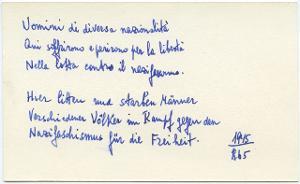 Uomini di diversa nazionalità
Qui soffrirono e perirono per la libertà
Nella lotta contro il nazifascismo.
Hier litten und starben Männer
Verschiedener Völker im Kampf gegen den
Nazifaschismus für die Freiheit.
1945
1965